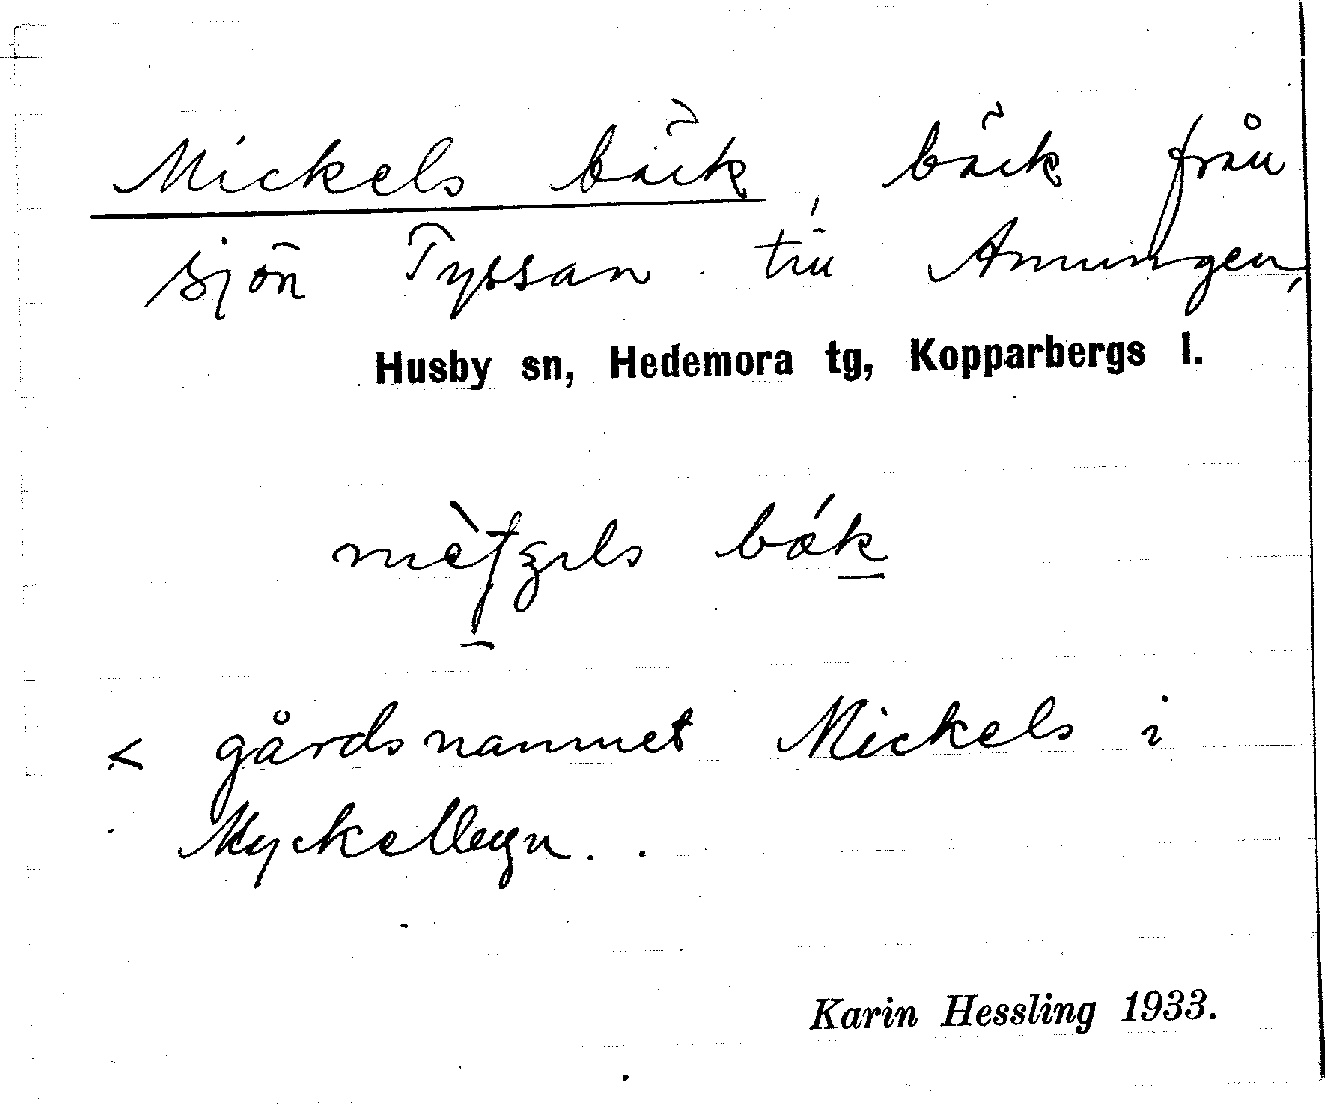 Mickels bäck, bäck från
sjön Tyssan till Amungen,
Husby sn, Hedemora tg, Kopparbergs l.
bǽk
< gårdsnamnet Mickels i
Myckelbyn.
Karin Hessling 1933.